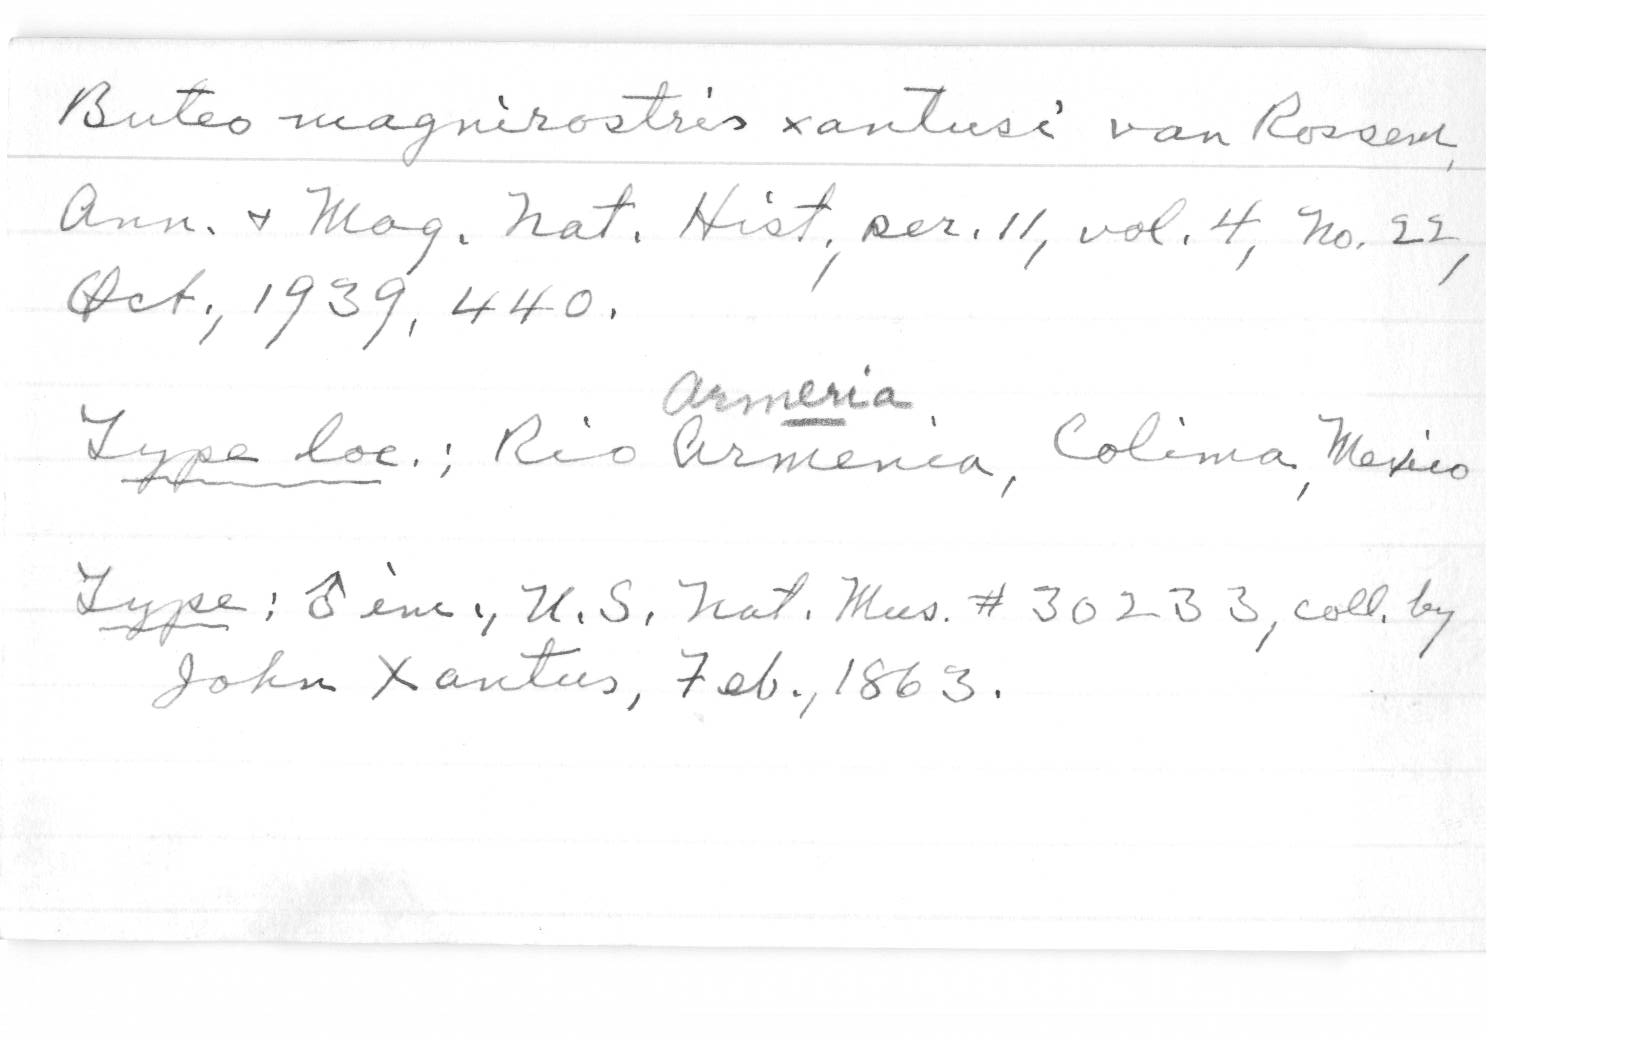 Buteo magnirostris xantusi van Rossem,
Ann. & Mag. Nat. Hist., ser. 11, vol. 4, No. 22,
Oct., 1939, 440.
Armeria
Type loc.; Rio Armenia, Colima, Mexico
Type: ♂ im., U.S. Nat. Mus. # 30233, coll. by
John Xantus, Feb., 1863.